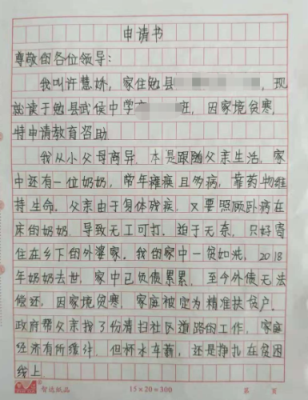 申请书
尊敬的各位领导：
我叫许慧娇，家住勉县 ，现
就读于勉县武侯中学 班，因家境贫寒，
特申请教育咨助
我从小父母离异，本是跟随父亲生活，家
中还有一位奶奶，常年瘫痪且多病，靠药物维
持生命。父亲由于身体残疾，又要照顾卧病在
床的奶奶，导致无工可打，益于无奈，只好寄
住在乡下的外婆家。我的家中一贫如洗，2018
年奶奶去世，家中已负债累累，至今外债无法
偿还，因家境贫寒，家庭被定为精准扶贫户。
政府帮父亲找了份清扫社区道路的工作，家庭
经济有所缓汁，但杯水车薪，还是挣扎在贫困
线上
15×20=300
第 页